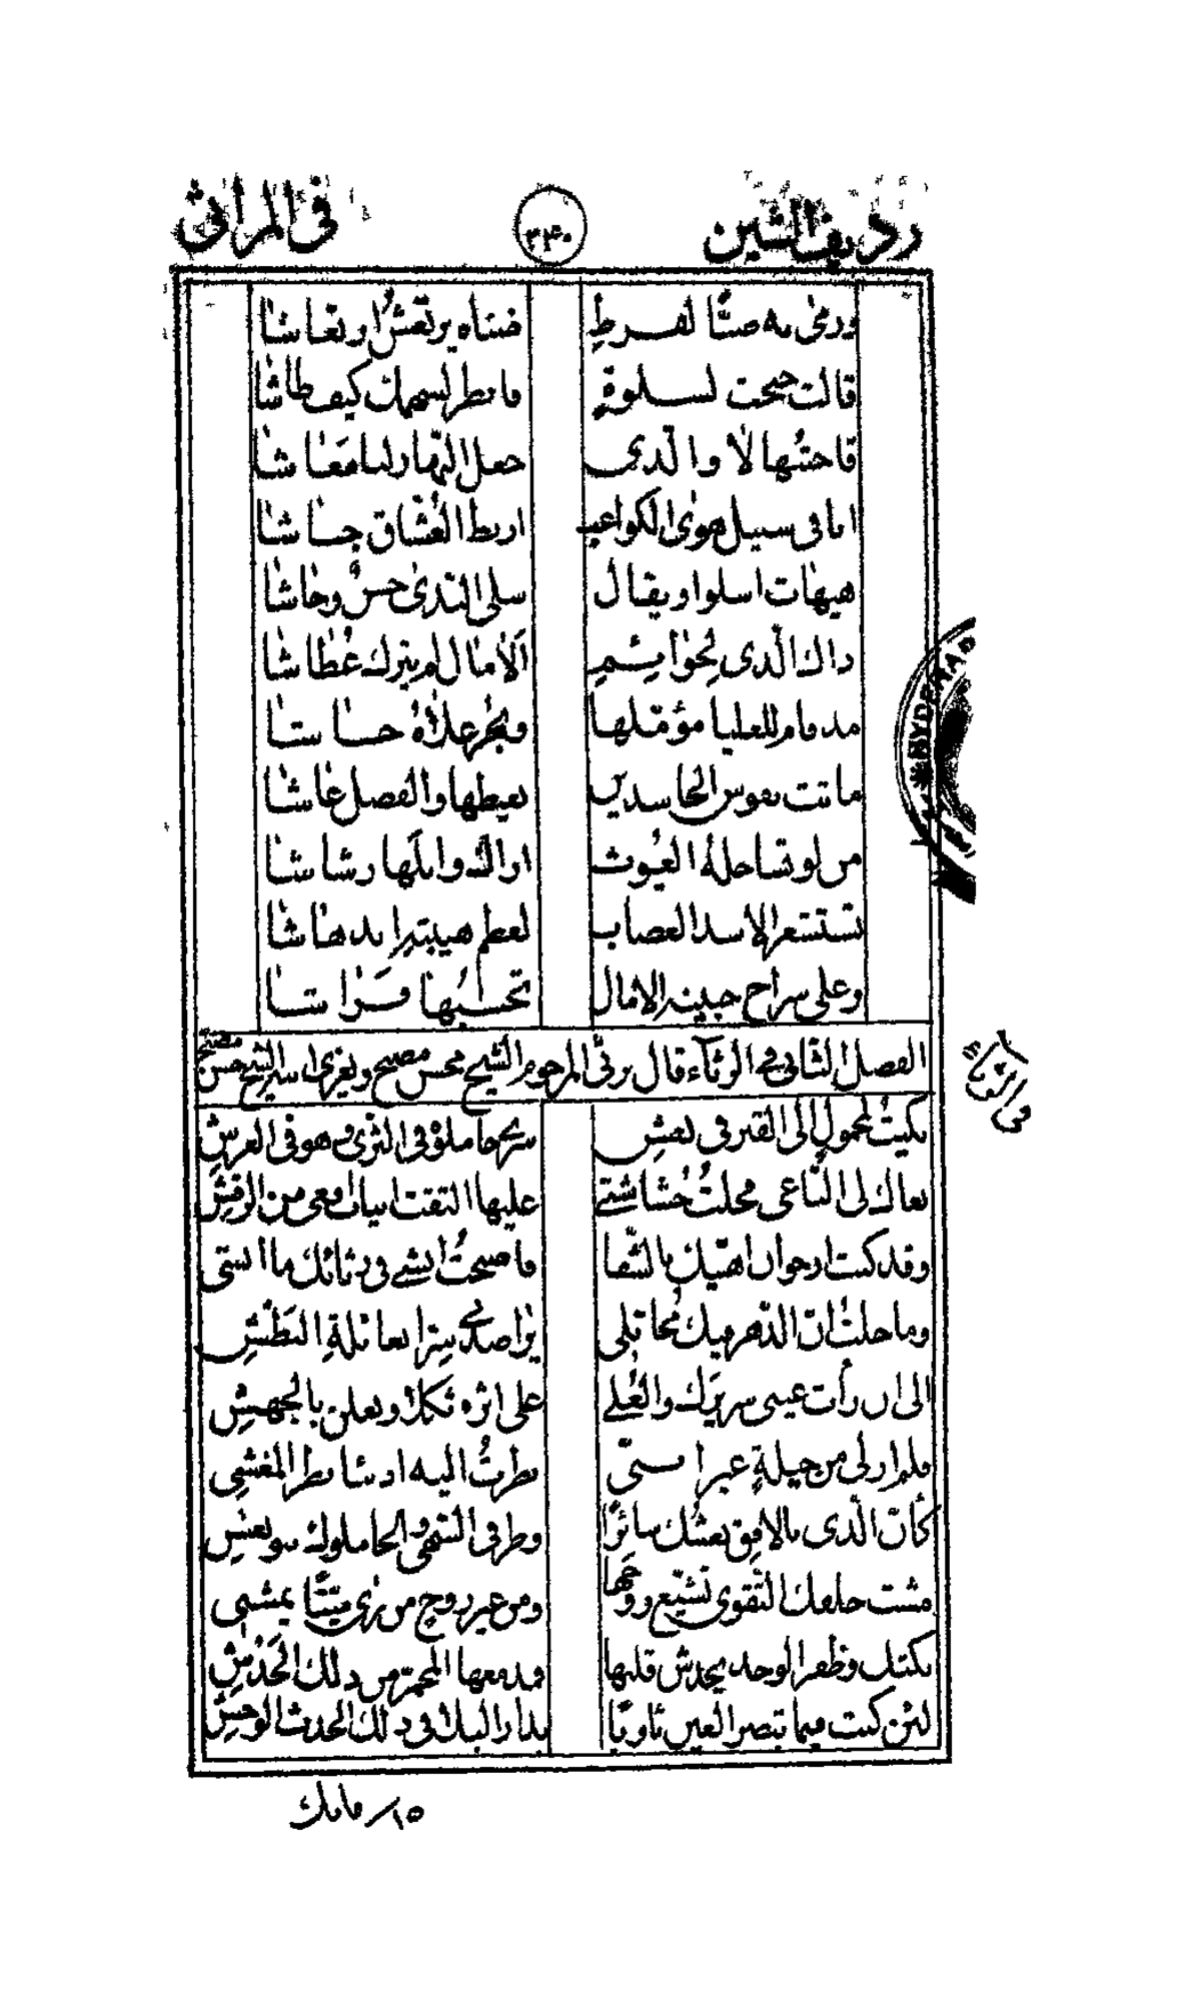 رديف الشين
٣٤٠
فى المراثى
ورمى به صبًّا لفرطِ ضناه يرتعشُ ارتعاشا
قالت جنحت لسلوةٍ فانظر لسهمك كيف طاشا
فاجبتُها لا والّذى جعل النّهار لنا مَعَاشا
انا فى سبيل هوى الكواعب اربط العُشّاق جاشا
هيهات اسلوا ويقال سلى الندى حسنٌ وحاشا
ذاك الّذى نحوا الاٰمال لم يترك عُطاشا
مذ قام للعليا مؤمّلها
ماتت نفوس الحاسدين بغيظها والفضل عاشا
من لو تشاجله الغيوث ارالك وابلها رشاشا
تستشعر الاسد الغضاب لعظم هيبته اندهاشا
وعلى سراج جبينه الامال تحسبها فَراشا
الفصل الثانى فى الرثآء قال يرثى المرحوم الشيخ محسن مصبح ويعزى الشيخ حسن مصبح
فى الرثاء
بكيتُ لمحمولٍ الى القبر فى نعشِ سرى حاملوهُ فى الثرى وهو فى العرشِ
نعاك لى النّاعى فخلتُ حُشاشتى عليها التقت انياب افعى من الرقشِ
وقد كنت ارجو ان اهنّيك بالشّفا فاصبحتُ انشى فى رثائك ما انشى
وما خلتُ انّ الدّهر فيك مُخاتلى يواصدنى سرّا بعائلةِ البَطشِ
الى ان رأت عينى سريرك والعُلى على اثره ثكلا ويعلن بالجهشِ
فلم ار لى من حيلةٍ غير انّنى نظرتُ اليه اذ نظر المغشى
كأنّ الّذى بالافق نعشُك سائرًا وطرفى السّهى والحاملوك بنو نعشِ
مشت خلفك التّقوى تشيّع روحها ومن غير روحٍ من رأى ميّتًا يمشى
بكتك وظفر الوجد يخدش قلبها فمدمعها المحمرّ من ذلك الخَدْشِ
لئن كنت فيما تبصر العين ثاويًا بدار البلى فى ذلك الجدث الوحشِ
فانك